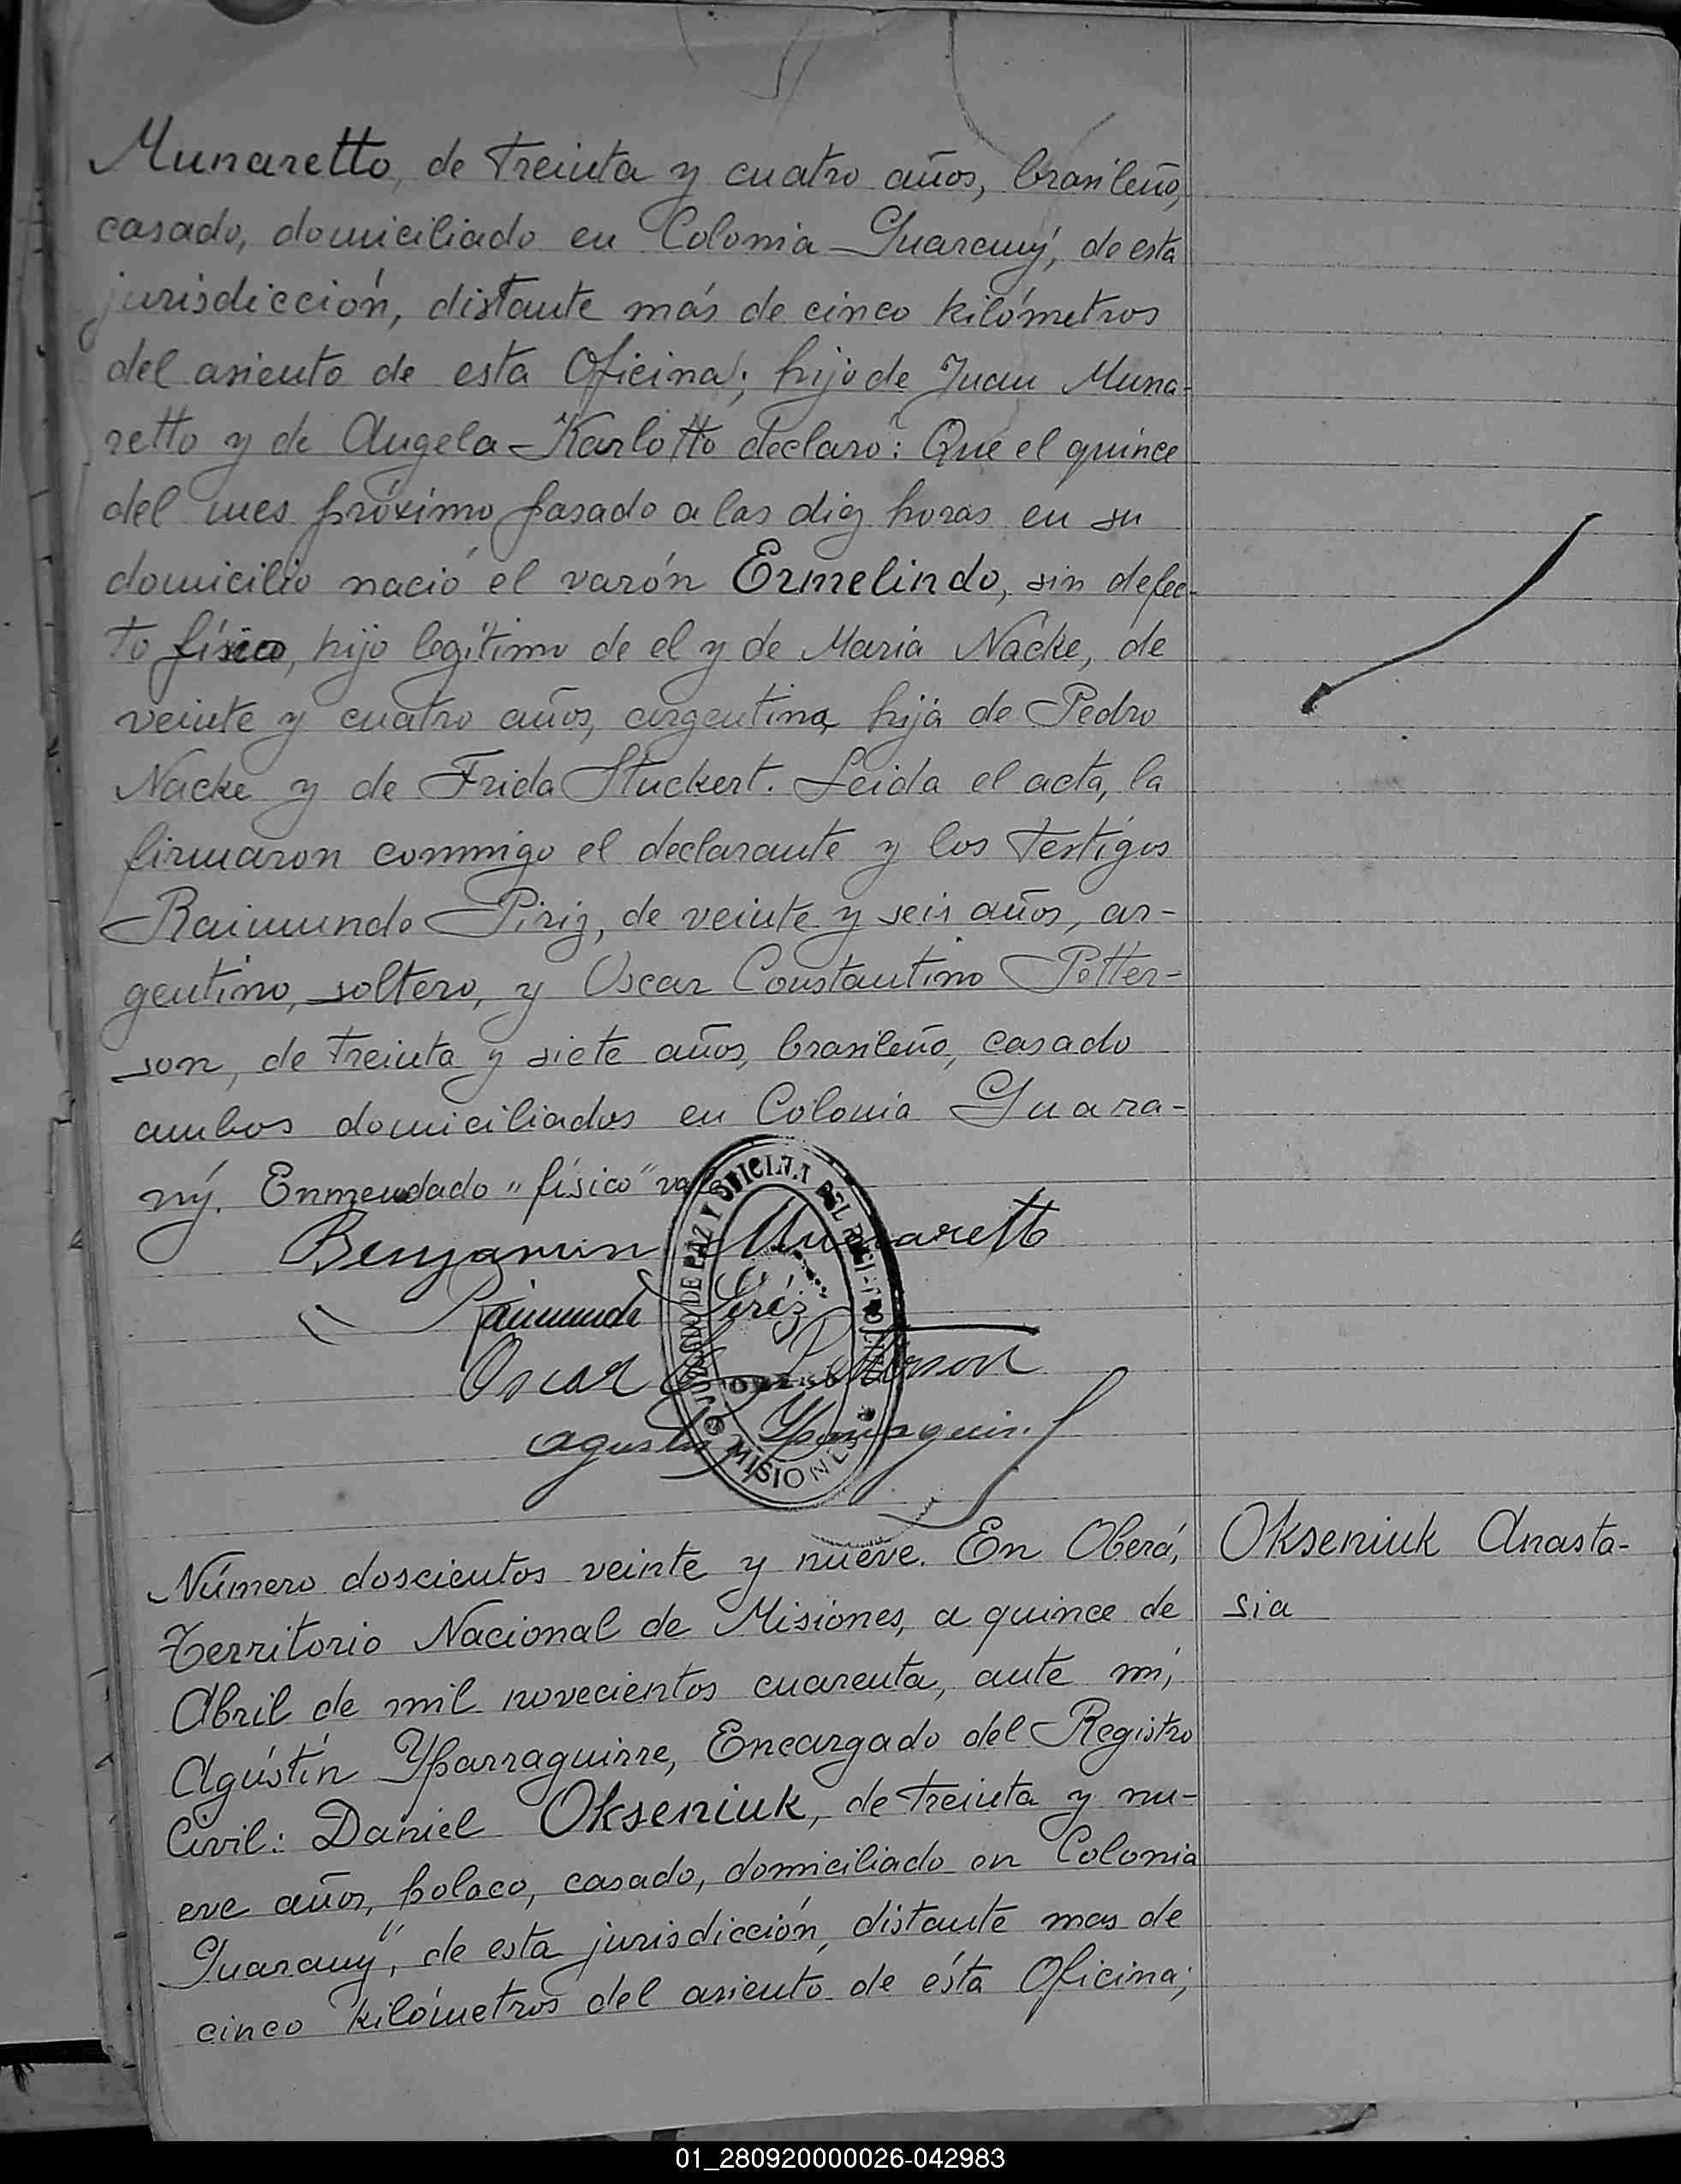 Munaretto, de treinta y cuatro años, brasileño,
casado, domiciliado en Colonia Guarany, de esta
jurisdicción, distante más de cinco kilómetros
del asiento de esta Oficina; hijo de Juan Muna-
retto y de Angela Karlotto declaró: Que el quince
del mes próximo pasado a las diez horas en su
domicilio nació el varón Ermelindo, sin defec-
to físico, hijo legítimo de el y de Maria Nacke, de
veinte y cuatro años, argentina, hija de Pedro
Nacke y de Frida Stuckert. Leida el acta, la
firmaron conmigo el declarante y los testigos
Raimundo Piriz, de veinte y seis años, ar-
gentino, soltero, y Oscar Constantino Petter-
son, de treinta y siete años, brasileño, casado
ambos domiciliados en Colonia Guara-
ny. Enmendado "físico" vale
Benjamin Munaretto
Raimundo Piriz
Oscar C. Petterson
Agustín Yparraguirre
JUZGADO DE PAZ Y OFICINA DEL REGISTRO CIVIL
MISIONES
Número doscientos veinte y nueve. En Oberá,
Territorio Nacional de Misiones, a quince de
Abril de mil novecientos cuarenta, ante mí,
Agústín Yparraguirre, Encargado del Registro
Civil: Daniel Okseniuk, de treinta y nu-
eve años, polaco, casado, domiciliado en Colonia
Guarany", de esta jurisdicción, distante mas de
cinco kilómetros del asiento de ésta Oficina;
Okseniuk Anasta-
sia
01_280920000026-042983